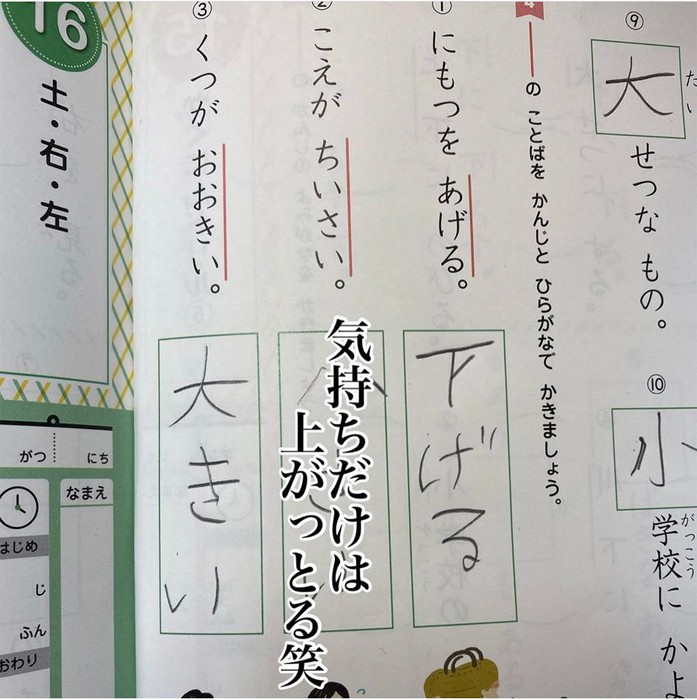 ⑨
大
たい
せつな もの。
⑩
小
学校に かよ
がっこう
4
の ことばを かんじと ひらがなで かきましょう。
① にもつを あげる。
下げる
② こえが ちいさい。
③ くつが おおきい。
大きい
気持ちだけは
上がっとる笑
16
土・右・左
がつ にち
なまえ
はじめ
じ
ふん
おわり